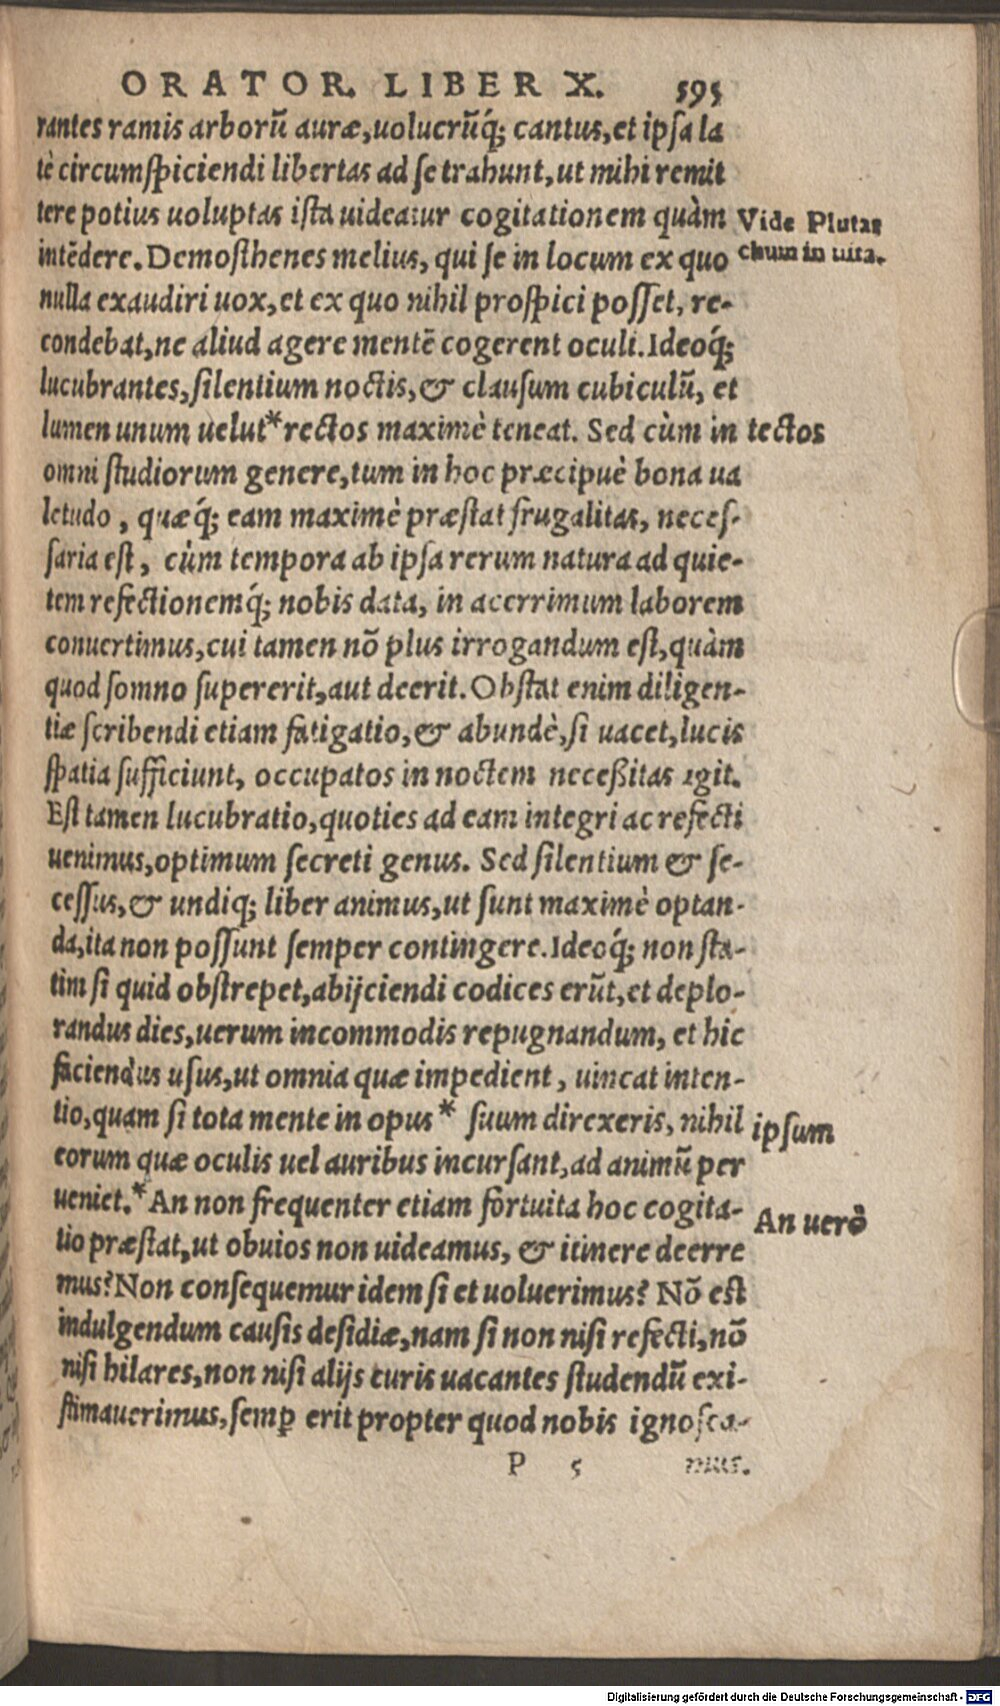 ORATOR. LIBER X. 595
rantes ramis arborũ auræ, uolucrũq́; cantus, et ipsa la
tè circumspiciendi libertas ad se trahunt, ut mihi remit
tere potius uoluptas ista uideatur cogitationem quàm
Vide Plutar
intẽdere. Demosthenes melius, qui se in locum ex quo
chum in uita.
nulla exaudiri uox, et ex quo nihil prospici posset, re-
condebat, ne aliud agere mentẽ cogerent oculi. Ideoq́;
lucubrantes, silentium noctis, & clausum cubiculũ, et
lumen unum uelut* rectos maximè teneat. Sed cùm in
tectos
omni studiorum genere, tum in hoc præcipuè bona ua
letudo, quæq́; eam maximè præstat frugalitas, neces-
saria est, cùm tempora ab ipsa rerum natura ad quie-
tem refectionemq́; nobis data, in acerrimum laborem
conuertimus, cui tamen nõ plus irrogandum est, quàm
quod somno supererit, aut deerit. Obstat enim diligen-
tiæ scribendi etiam fatigatio, & abundè, si uacet, lucis
spatia sufficiunt, occupatos in noctem neceßitas agit.
Est tamen lucubratio, quoties ad eam integri ac refecti
uenimus, optimum secreti genus. Sed silentium & se-
cessus, & undiq; liber animus, ut sunt maximè optan-
da, ita non possunt semper contingere. Ideoq́; non sta-
tim si quid obstrepet, abijciendi codices erũt, et deplo-
randus dies, uerum incommodis repugnandum, et hic
faciendus usus, ut omnia quæ impedient, uincat inten-
tio, quam si tota mente in opus* suum direxeris, nihil
ipsum
eorum quæ oculis uel auribus incursant, ad animũ per
ueniet. *An non frequenter etiam fortuita hoc cogita-
An uerò
tio præstat, ut obuios non uideamus, & itinere deerre
mus? Non consequemur idem si et uoluerimus? Nõ est
indulgendum causis desidiæ, nam si non nisi refecti, nõ
nisi hilares, non nisi alijs curis uacantes studendũ exi-
stimauerimus, semꝑ erit propter quod nobis ignosca-
P 5 mus.
Digitalisierung gefördert durch die Deutsche Forschungsgemeinschaft - DFG